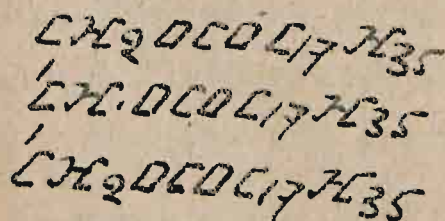 CH₂OCOC₁₇H₃₅
CH·OCOC₁₇H₃₅
CH₂OCOC₁₇H₃₅